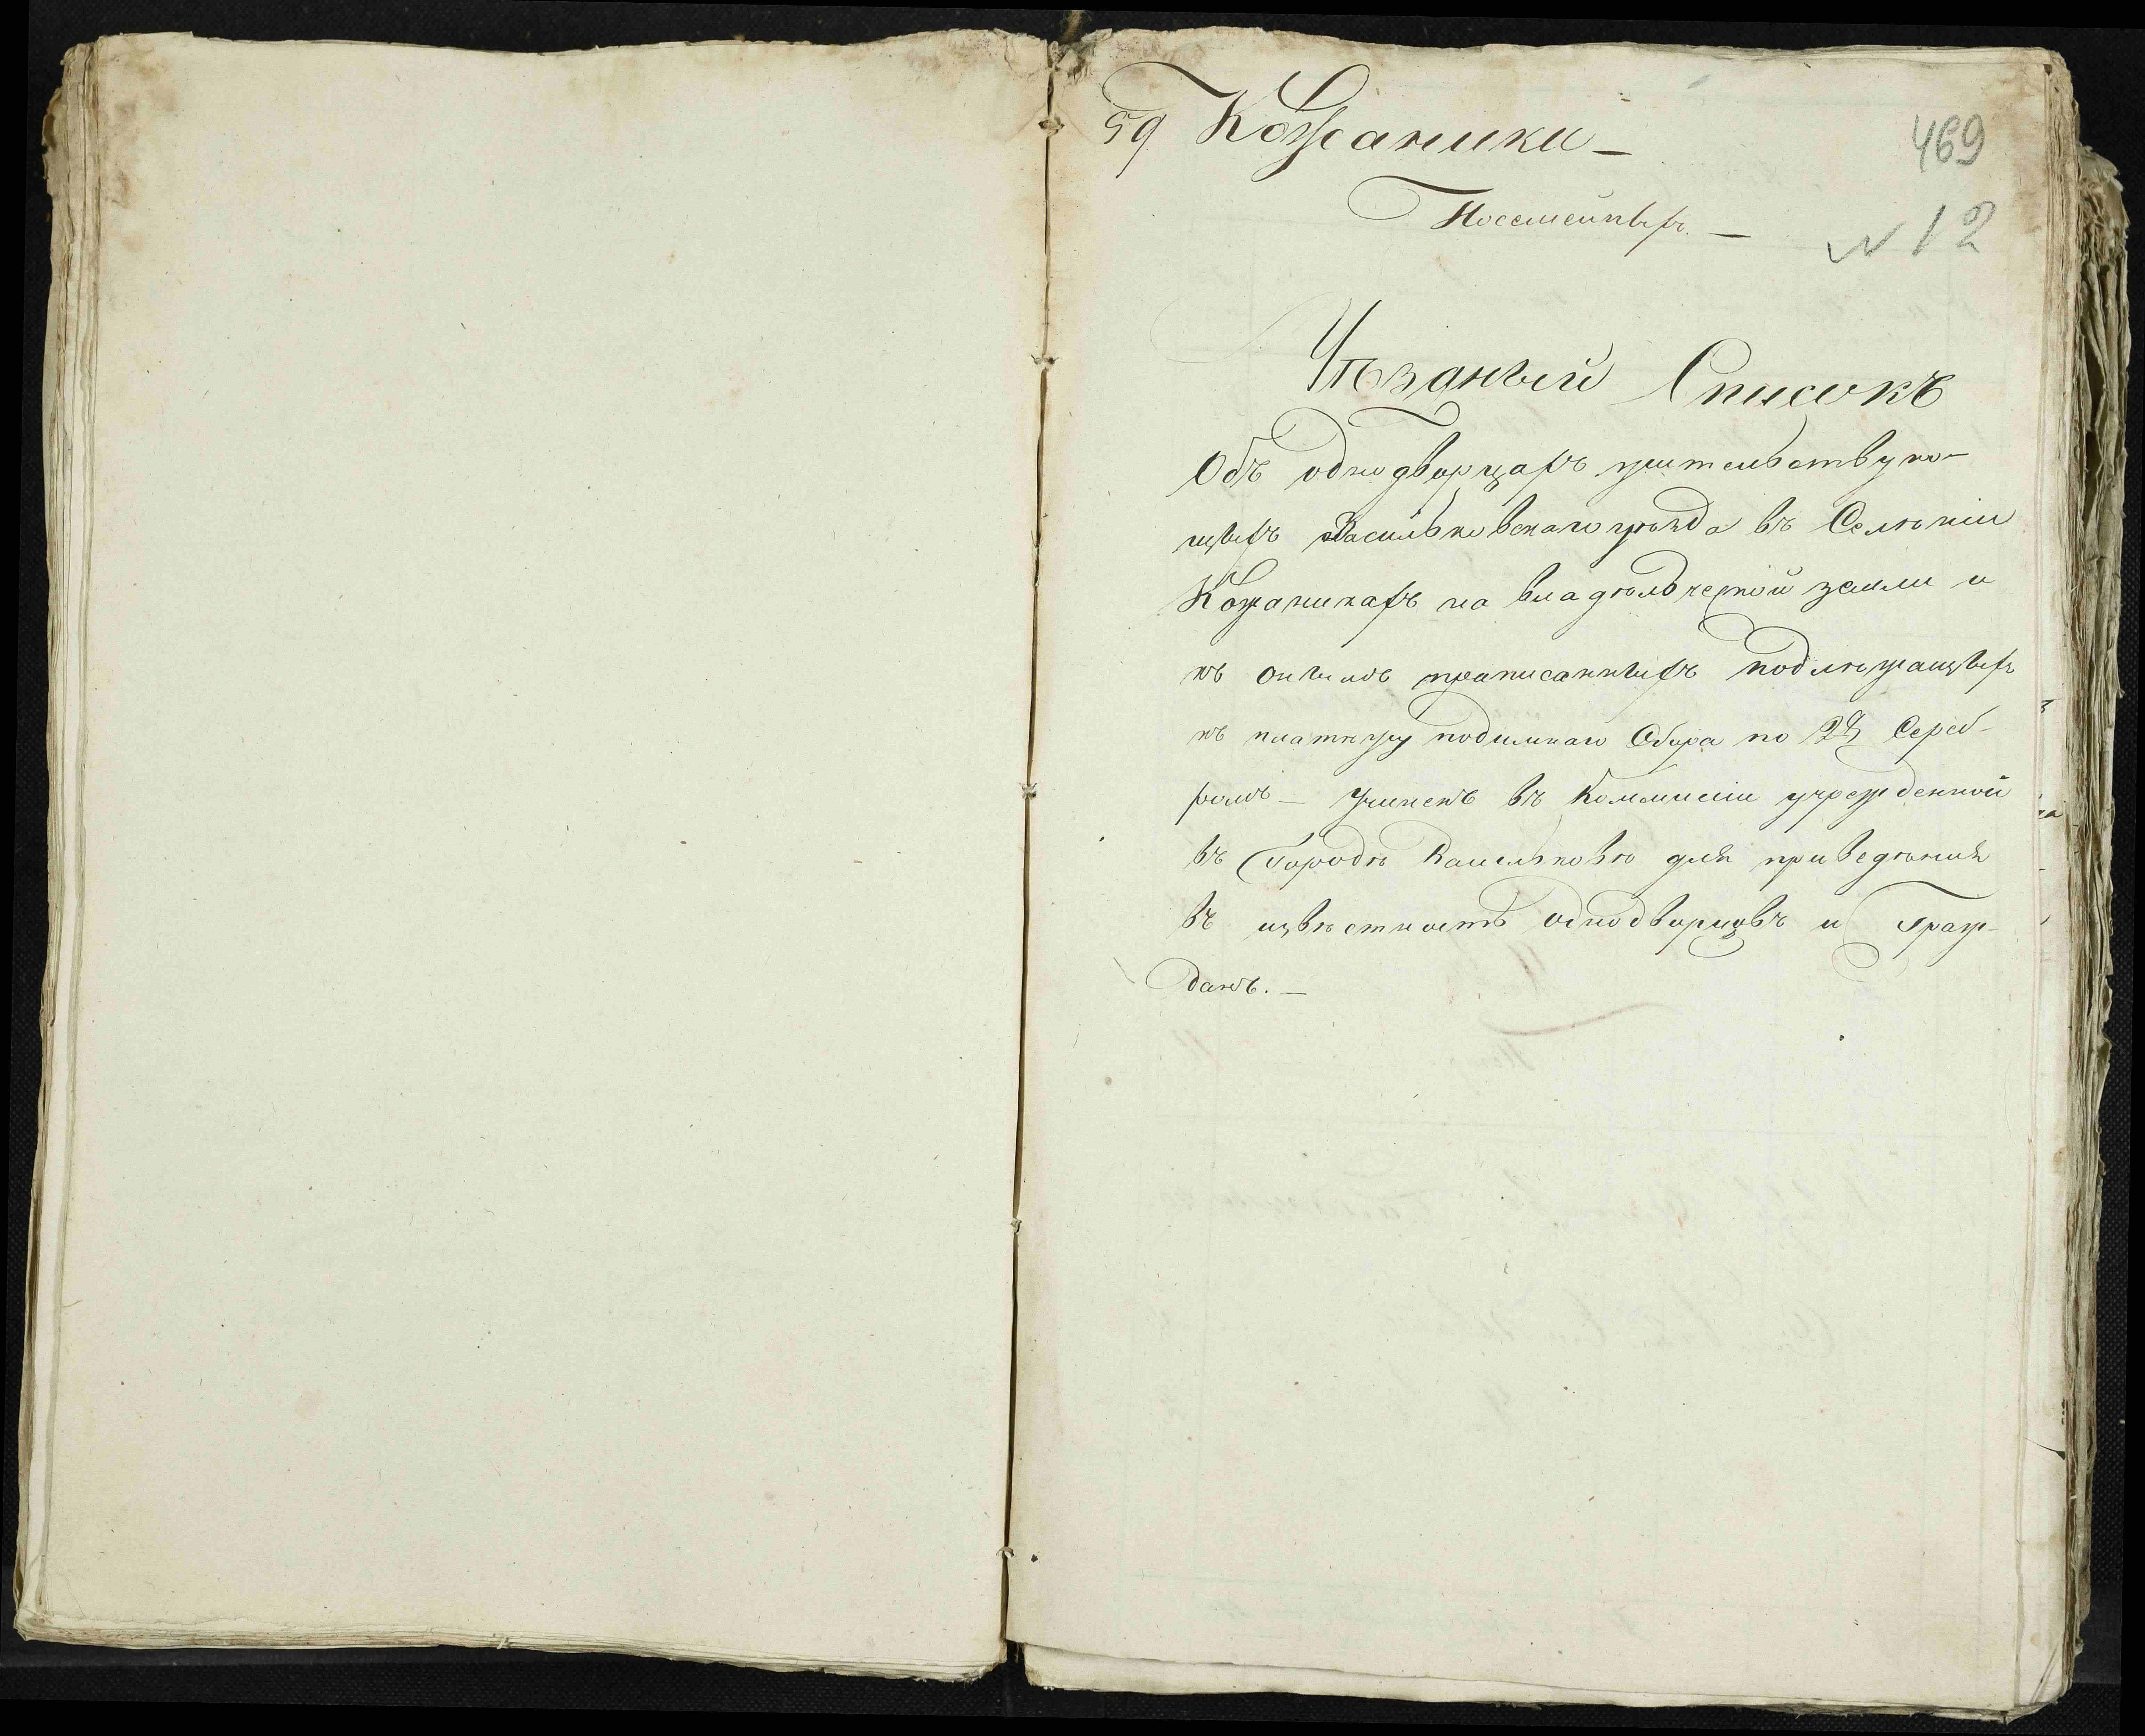 59 Кожаники —
469
Посемейныхъ. —
N 12
Уѣздный Списокъ
Объ однодворцахъ жительствую-
щыхъ Васильковскаго уѣзда въ Селѣніи
Кожаникахъ на владѣльческой земли и
къ онымъ приписанныхъ подлѣжащыхъ
къ платежу подымнаго Сбора по 2 Сереб-
ромъ — Учиненъ въ Коммисіи учрежденной
въ Городѣ Васильковѣ для приведѣнія
въ извѣстность однодворцовъ и Граж-
данъ. —